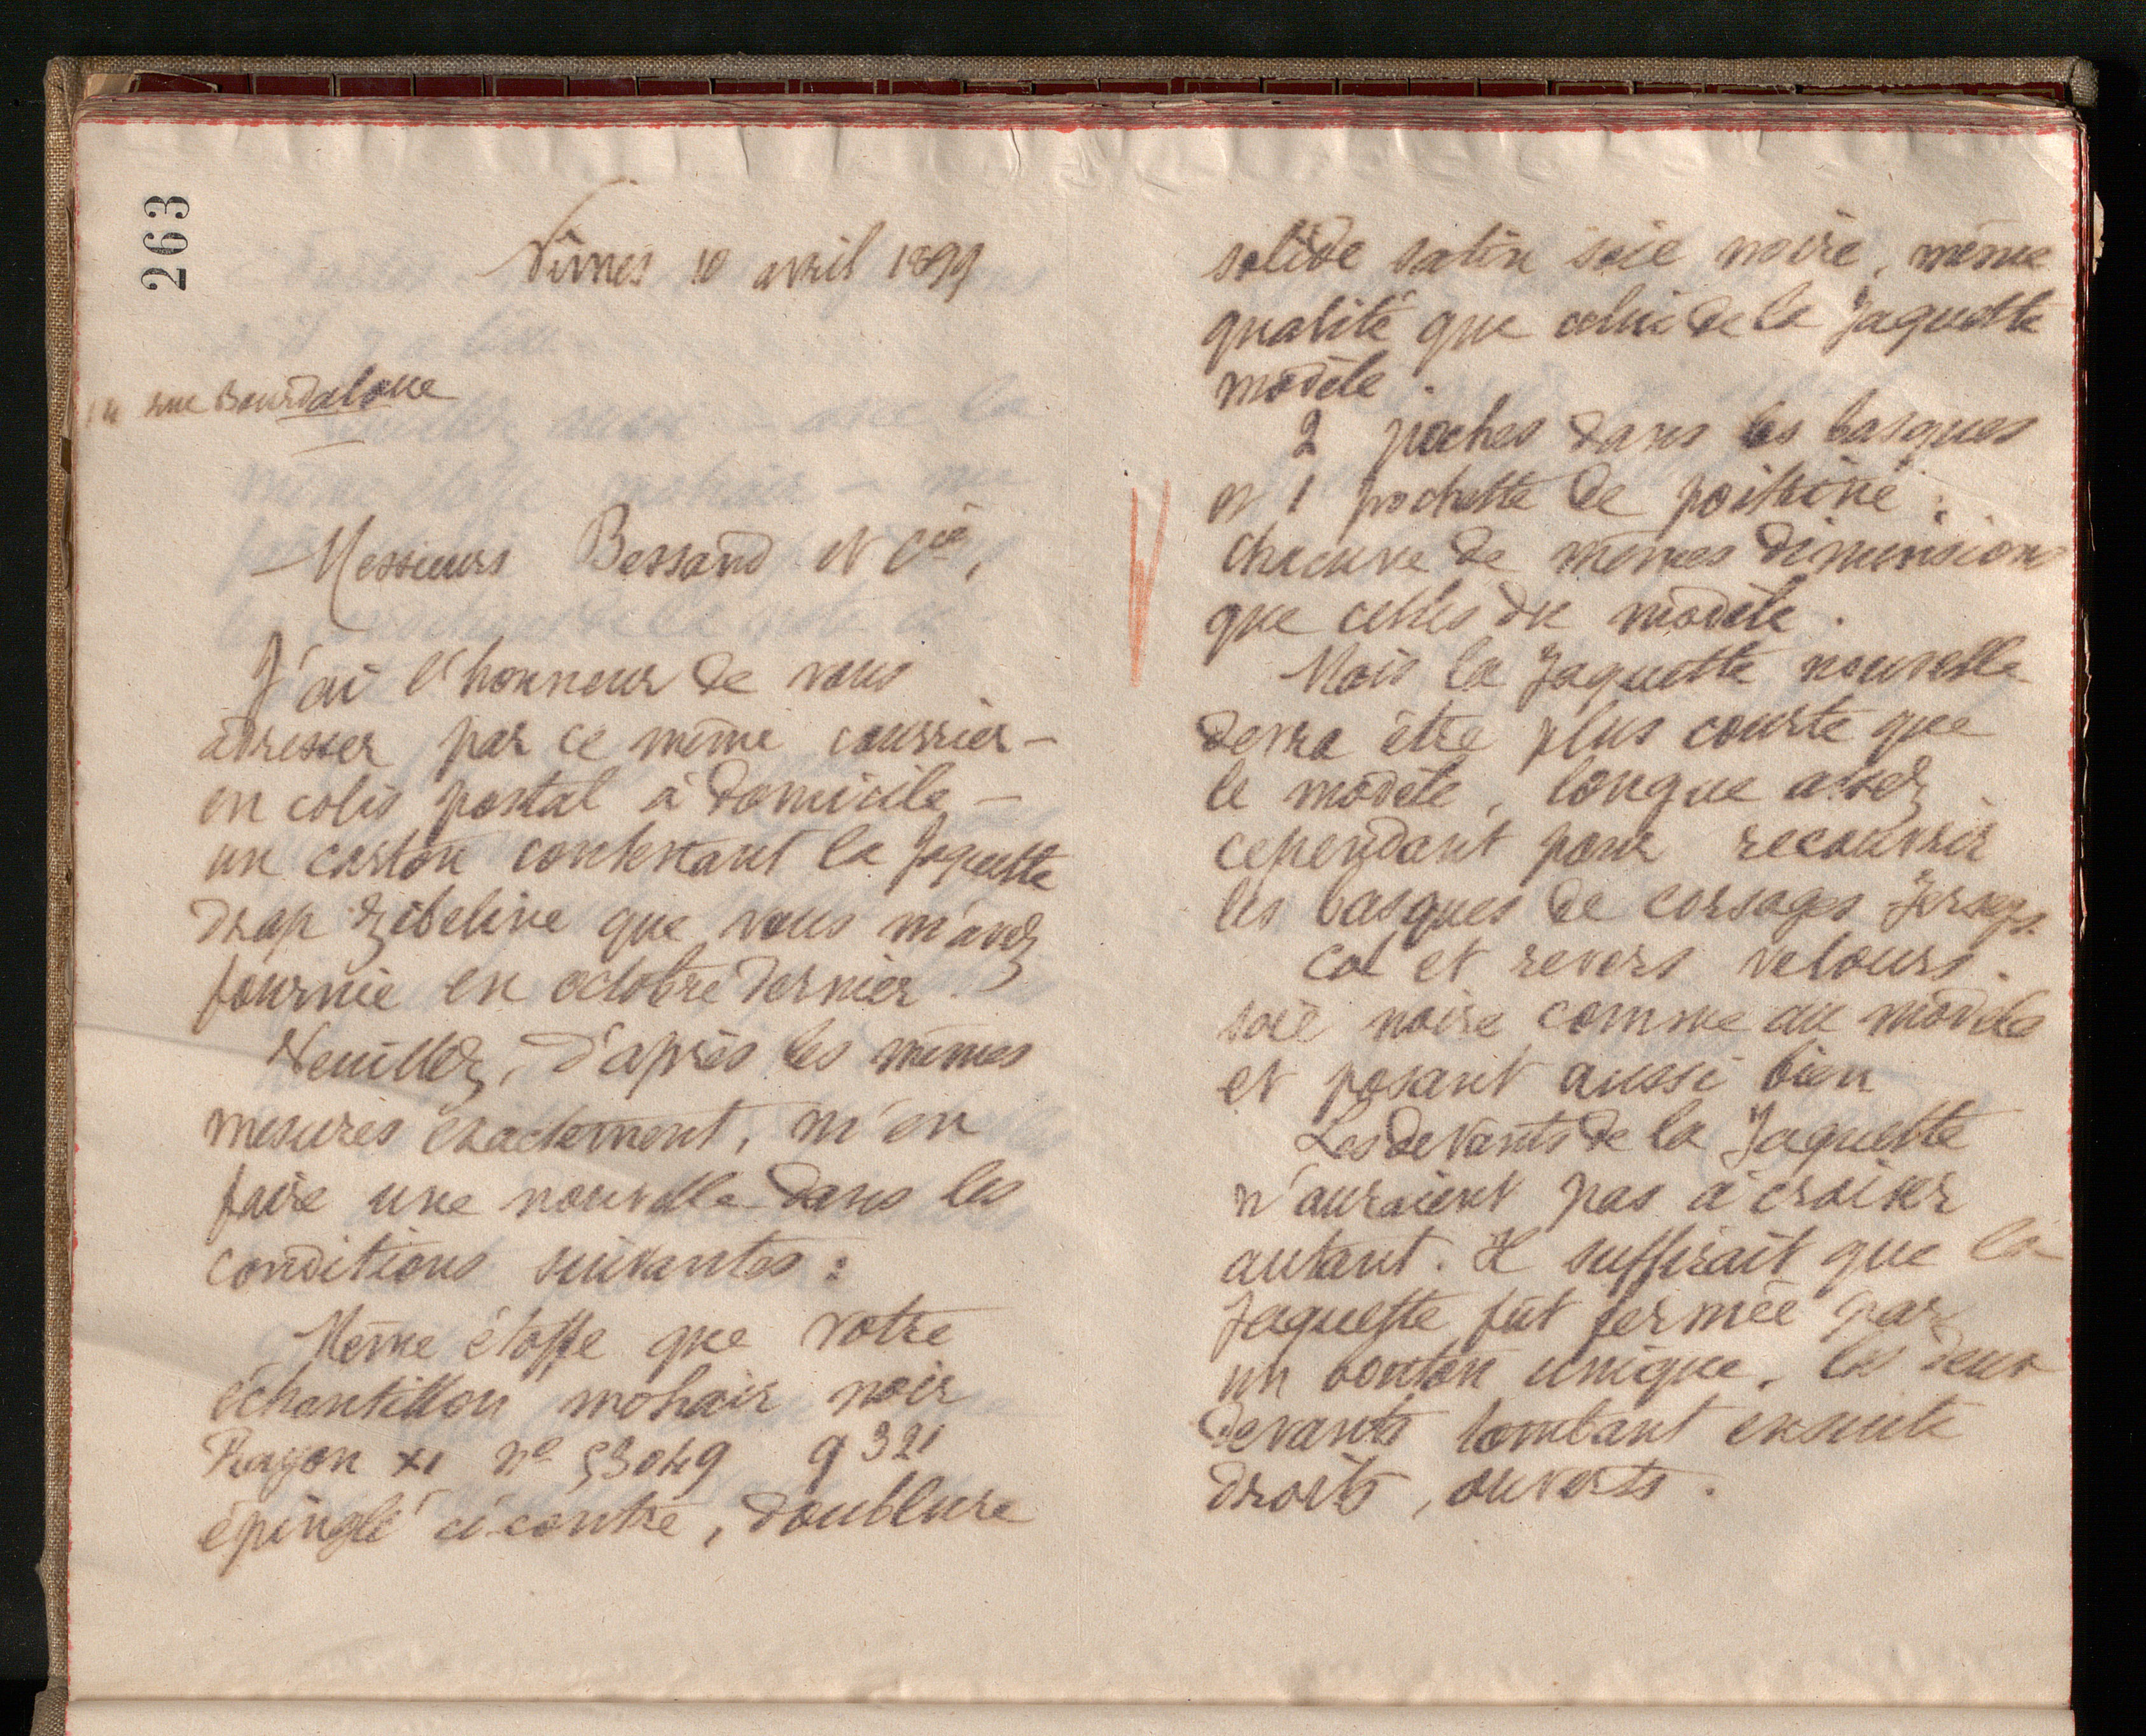 263
Nîmes 10 avril 1899
14 rue Bourdaloue
Messieurs Bessand et Cie,
J'ai l'honneur de vous
adresser par ce même courrier -
en colis postal à domicile -
un carton contenant la Jaquette
drap zibeline que vous m'avez
fournie en octobre dernier.
Veuillez, d'après les mêmes
mesures exactement, m'en
faire une nouvelle dans les
conditions suivantes :
Même étoffe que votre
échantillon mohair noir
Rayon XI no 53049 9321
épinglé ci-contre, doublure
solide satin soie noire, même
qualité que celui de la Jaquette
modèle.
2 poches dans les basques
et 1 pochette de poitrine :
chacune de mêmes dimensions
que celles du modèle.
Mais la Jaquette nouvelle
devra être plus courte que
le modèle, longue assez
cependant pour recouvrir
les basques de corsages Jerseys.
Col et revers velours
soie noire comme au modèle
et posant aussi bien
Les devants de la Jaquette
n'auraient pas à croiser
autant. Il suffirait que la
Jaquette fût fermée par
un bouton unique, les deux
devants tombant ensuite
droits, ouverts.